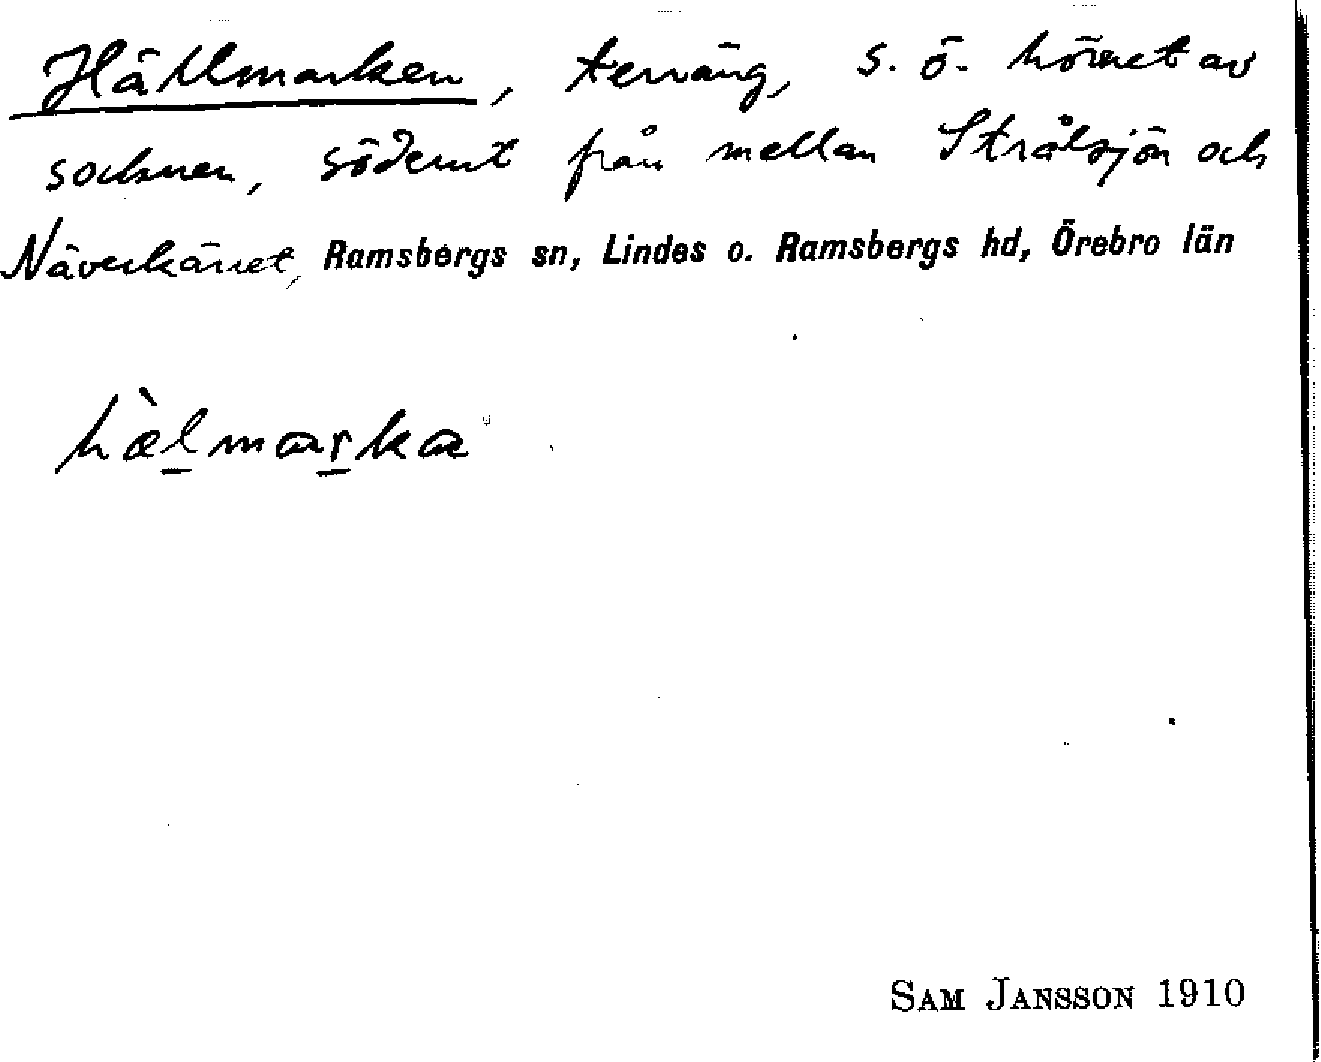 Hällmarken, terräng, s. ö. hörnet av
socknen, söderut från mellan Strålsjön och
Näverkärret, Ramsbergs sn, Lindes o. Ramsbergs hd, Örebro län
hælmarka
SAM JANSSON 1910